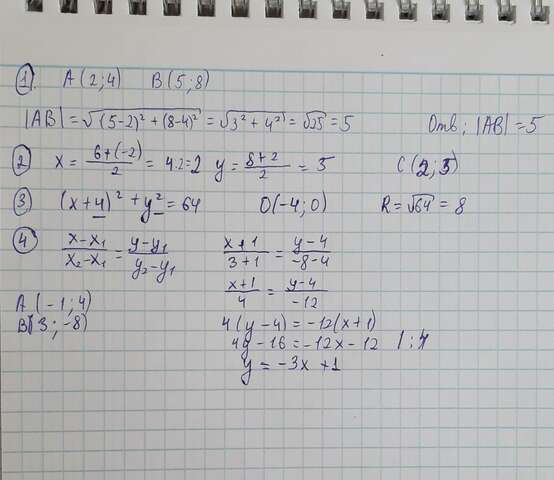 1. A(2;4) B(5;8)
|AB| = √((5-2)² + (8-4)²) = √(3² + 4²) = √25 = 5 Отв; |AB| = 5
2 x = (6+(-2))/2 = 4:2=2 y = (8+2)/2 = 5 C(2;5)
3 (x+4)² + y² = 64 O(-4;0) R = √64 = 8
4 (x-x₁)/(x₂-x₁) = (y-y₁)/(y₂-y₁) (x+1)/(3+1) = (y-4)/(-8-4)
(x+1)/4 = (y-4)/(-12)
A(-1;4)
B(3;-8) 4(y-4) = -12(x+1)
4y-16 = -12x-12 | :4
y = -3x+1